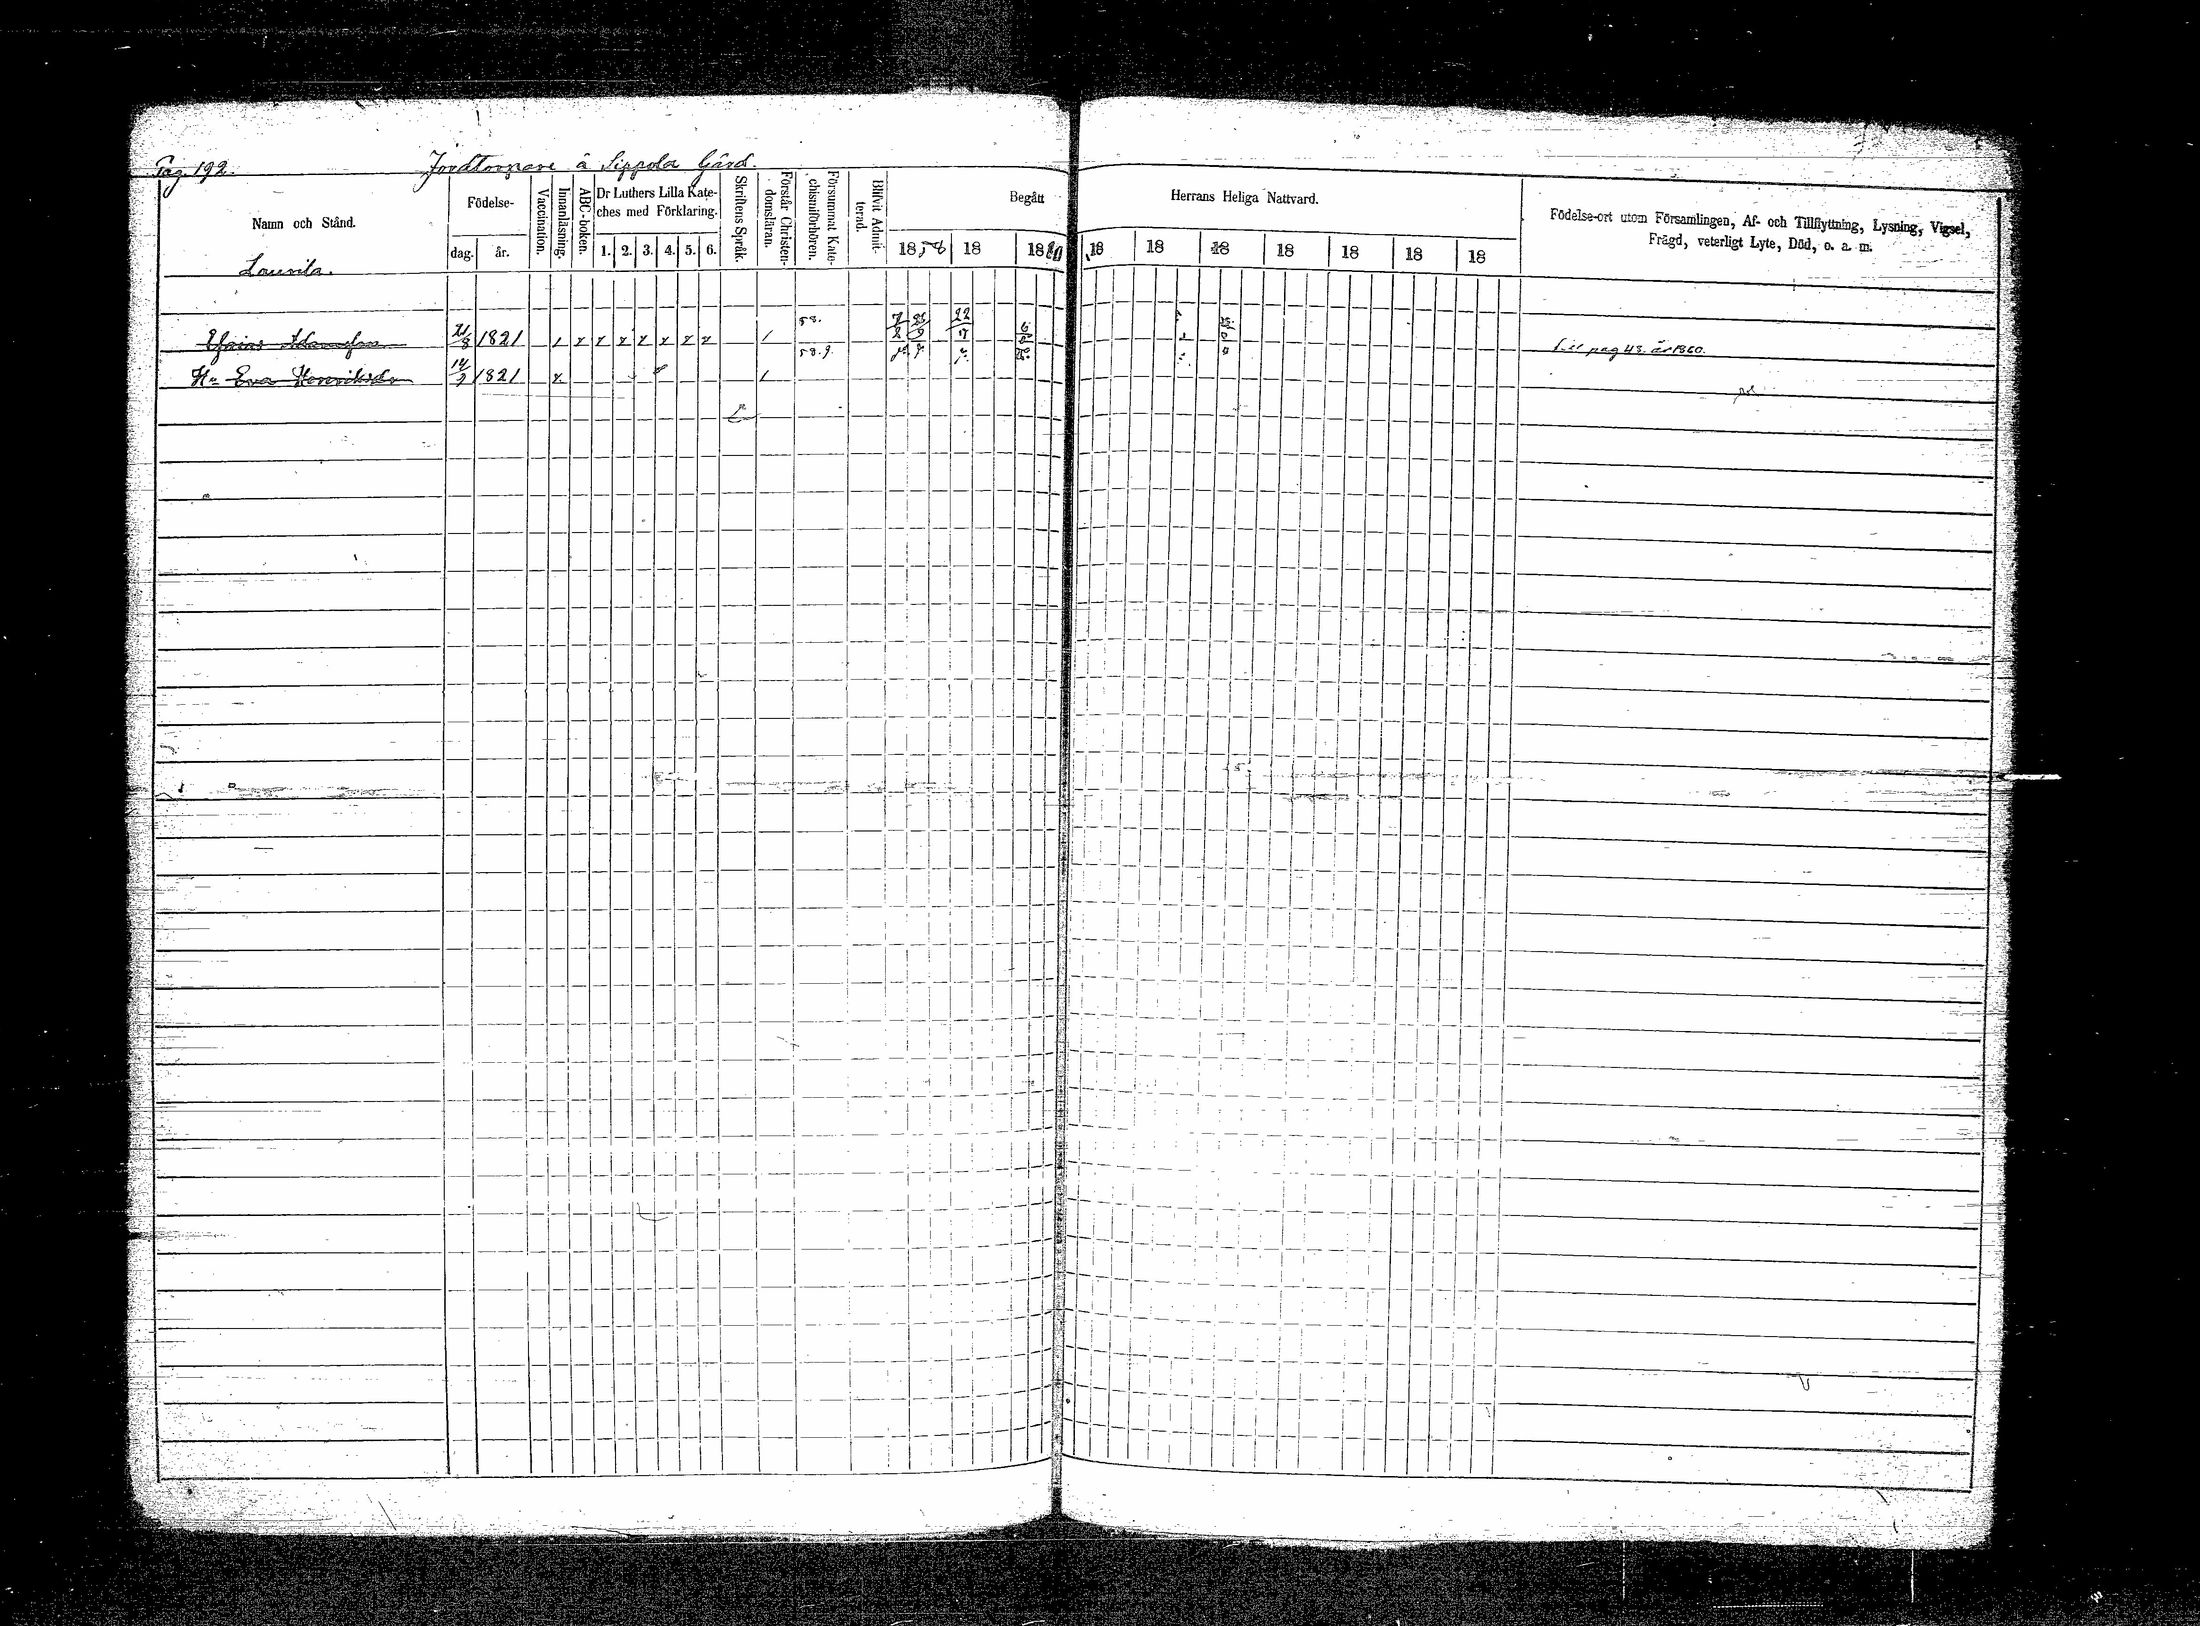 Pag. 192.
Jordtorpare å Sippola Gård.
Namn och Stånd.
Födelse-
dag.
år.
Vaccination.
Innanläsning.
ABC-boken.
Dr Luthers Lilla Kate-
ches med Förklaring.
1. 2. 3. 4. 5. 6.
Skriftens Språk.
Förstår Christen-
domsläran.
Försummat Kate-
chismiförhören.
Blifvit Admit-
terad.
Begått Herrans Heliga Nattvard.
1858 18 1860 18 18 18 18 18 18 18
Födelse-ort utom Församlingen, Af- och Tillflyttning, Lysning, Vigsel,
Frägd, veterligt Lyte, Död, o. a. m.
Lauvila.
Esaias Adamsson 21/8 1821 58.
Till pag 43. år 1860.
Hu Eva Henriksdr 14/9 1821 58.9.